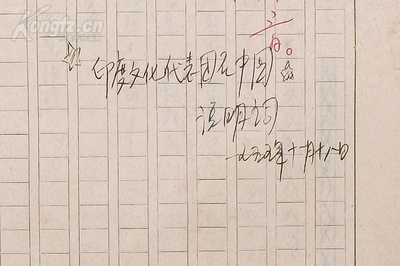 Kongfz.cn
☆印度文化代表团在中国☆
说明词
一九五五年十一月十八日